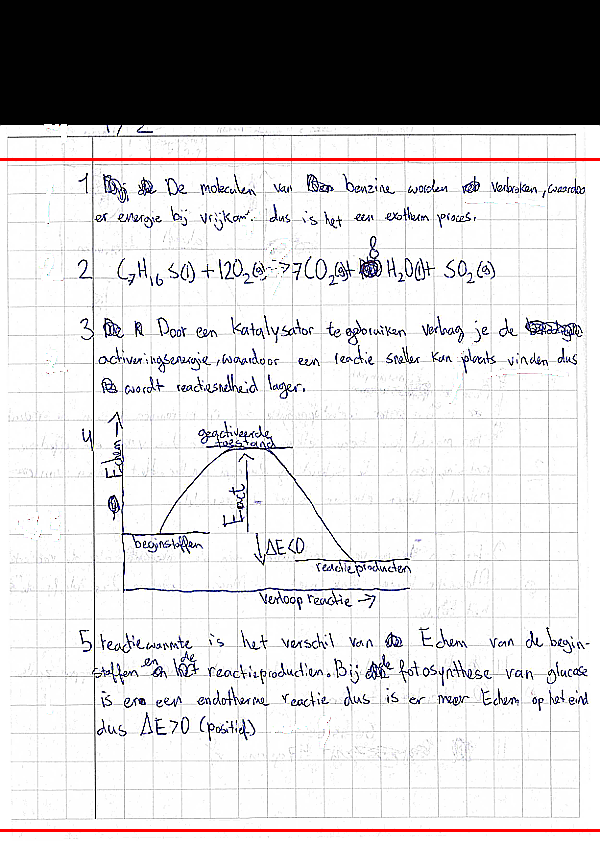 1 De moleculen van benzine worden verbroken, waardoor
er energie bij vrijkomt. dus is het een exotherm proces.
2 C₇H₁₆S(l) + 12O₂(g) -> 7CO₂(g) + 8 H₂O(l) + SO₂(g)
3 Door een Katalysator te gebruiken verlaag je de
activeringsenergie, waardoor een reactie sneller kan plaats vinden dus
wordt reactiesnelheid lager.
4
Echem →
geactiveerde
toestand
Eact
beginstoffen
ΔE<0
reactieproducten
Verloop reactie →
5 reactiewarmte is het verschil van Echem van de begin-
stoffen en de reactieproducten. Bij de fotosynthese van glucose
is een endotherme reactie dus is er meer Echem op het eind
dus ΔE>0 (positief)